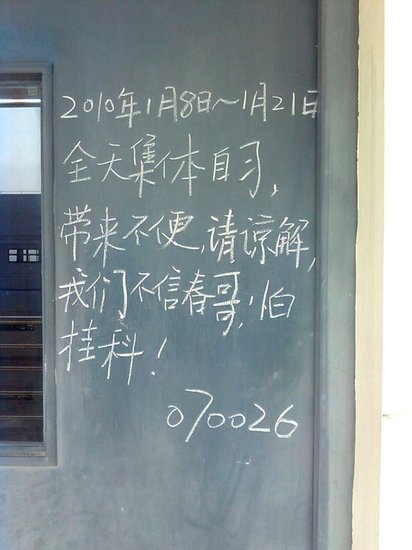 2010年1月8日～1月21日
全天集体自习,
带来不便,请谅解,
我们不信春哥,怕
挂科!
070026